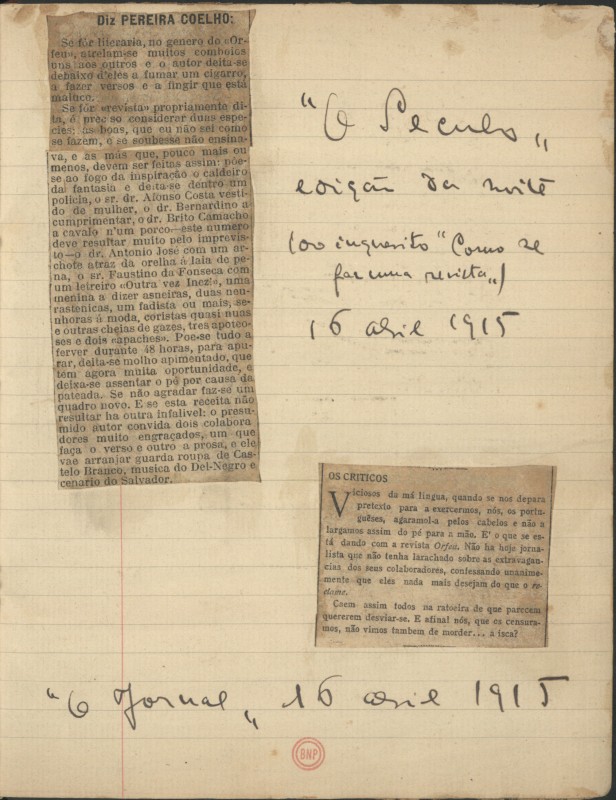 Diz PEREIRA COELHO:
Se fôr literaria, no genero do «Or-
feu», atrelam-se muitos comboios
uns aos outros e o autor deita-se
debaixo d'eles a fumar um cigarro,
a fazer versos e a fingir que está
maluco.
Se fôr «revista» propriamente di-
ta, é preciso considerar duas espe-
cies: as bons, que eu não sei como
se fazem, e se soubesse não ensina-
va, e as más que, pouco mais ou
menos, devem ser feitas assim: põe-
se ao fogo da inspiração o caldeiro
da fantasia e deita-se dentro um
policia, o sr. dr. Afonso Costa vesti-
do de mulher, o dr. Bernardino a
cumprimentar, o dr. Brito Camacho
a cavalo n'um porco—este numero
deve resultar muito pelo imprevis-
to—o dr. Antonio José com um ar-
chote atraz da orelha á laia de pe-
na, o sr. Faustino da Fonseca com
um letreiro «Outra vez Inez!», uma
menina a dizer asneiras, duas neu-
rastenicas, um fadista ou mais, se-
nhoras á moda, coristas quasi nuas
e outras cheias de gazes, tres apoteo-
ses e dois «apaches». Poe-se tudo a
ferver durante 48 horas, para apu-
rar, deita-se molho apimentado, que
tem agora muita oportunidade, e
deixa-se assentar o pé por causa da
pateada. Se não agradar faz-se um
quadro novo. E se esta receita não
resultar ha outra infalivel: o presu-
mido autor convida dois colabora
dores muito engraçados, um que
faça o verso e outro a prosa, e ele
vae arranjar guarda roupa de Cas-
telo Branco, musica do Del-Negro e
cenario do Salvador.
"O Seculo„
edição da noite
(ao inquerito "Como se
faz uma revista„)
16 abril 1915
OS CRITICOS
Viciosos da má lingua, quando se nos depara
pretexto para a exercermos, nós, os portu-
guêses, agaramol-a pelos cabelos e não a
largamos assim do pé para a mão. E' o que se es-
tá dando com a revista Orfeu. Não ha hoje jorna-
lista que não tenha larachado sobre as extravagan-
cias dos seus colaboradores, confessando unanime-
mente que eles nada mais desejam do que o re-
clame.
Caem assim todos na ratoeira de que parecem
quererem desviar-se. E afinal nós, que os censura-
mos, não vimos tambem de morder... a isca?
"O Jornal„ 16 abril 1915
BNP